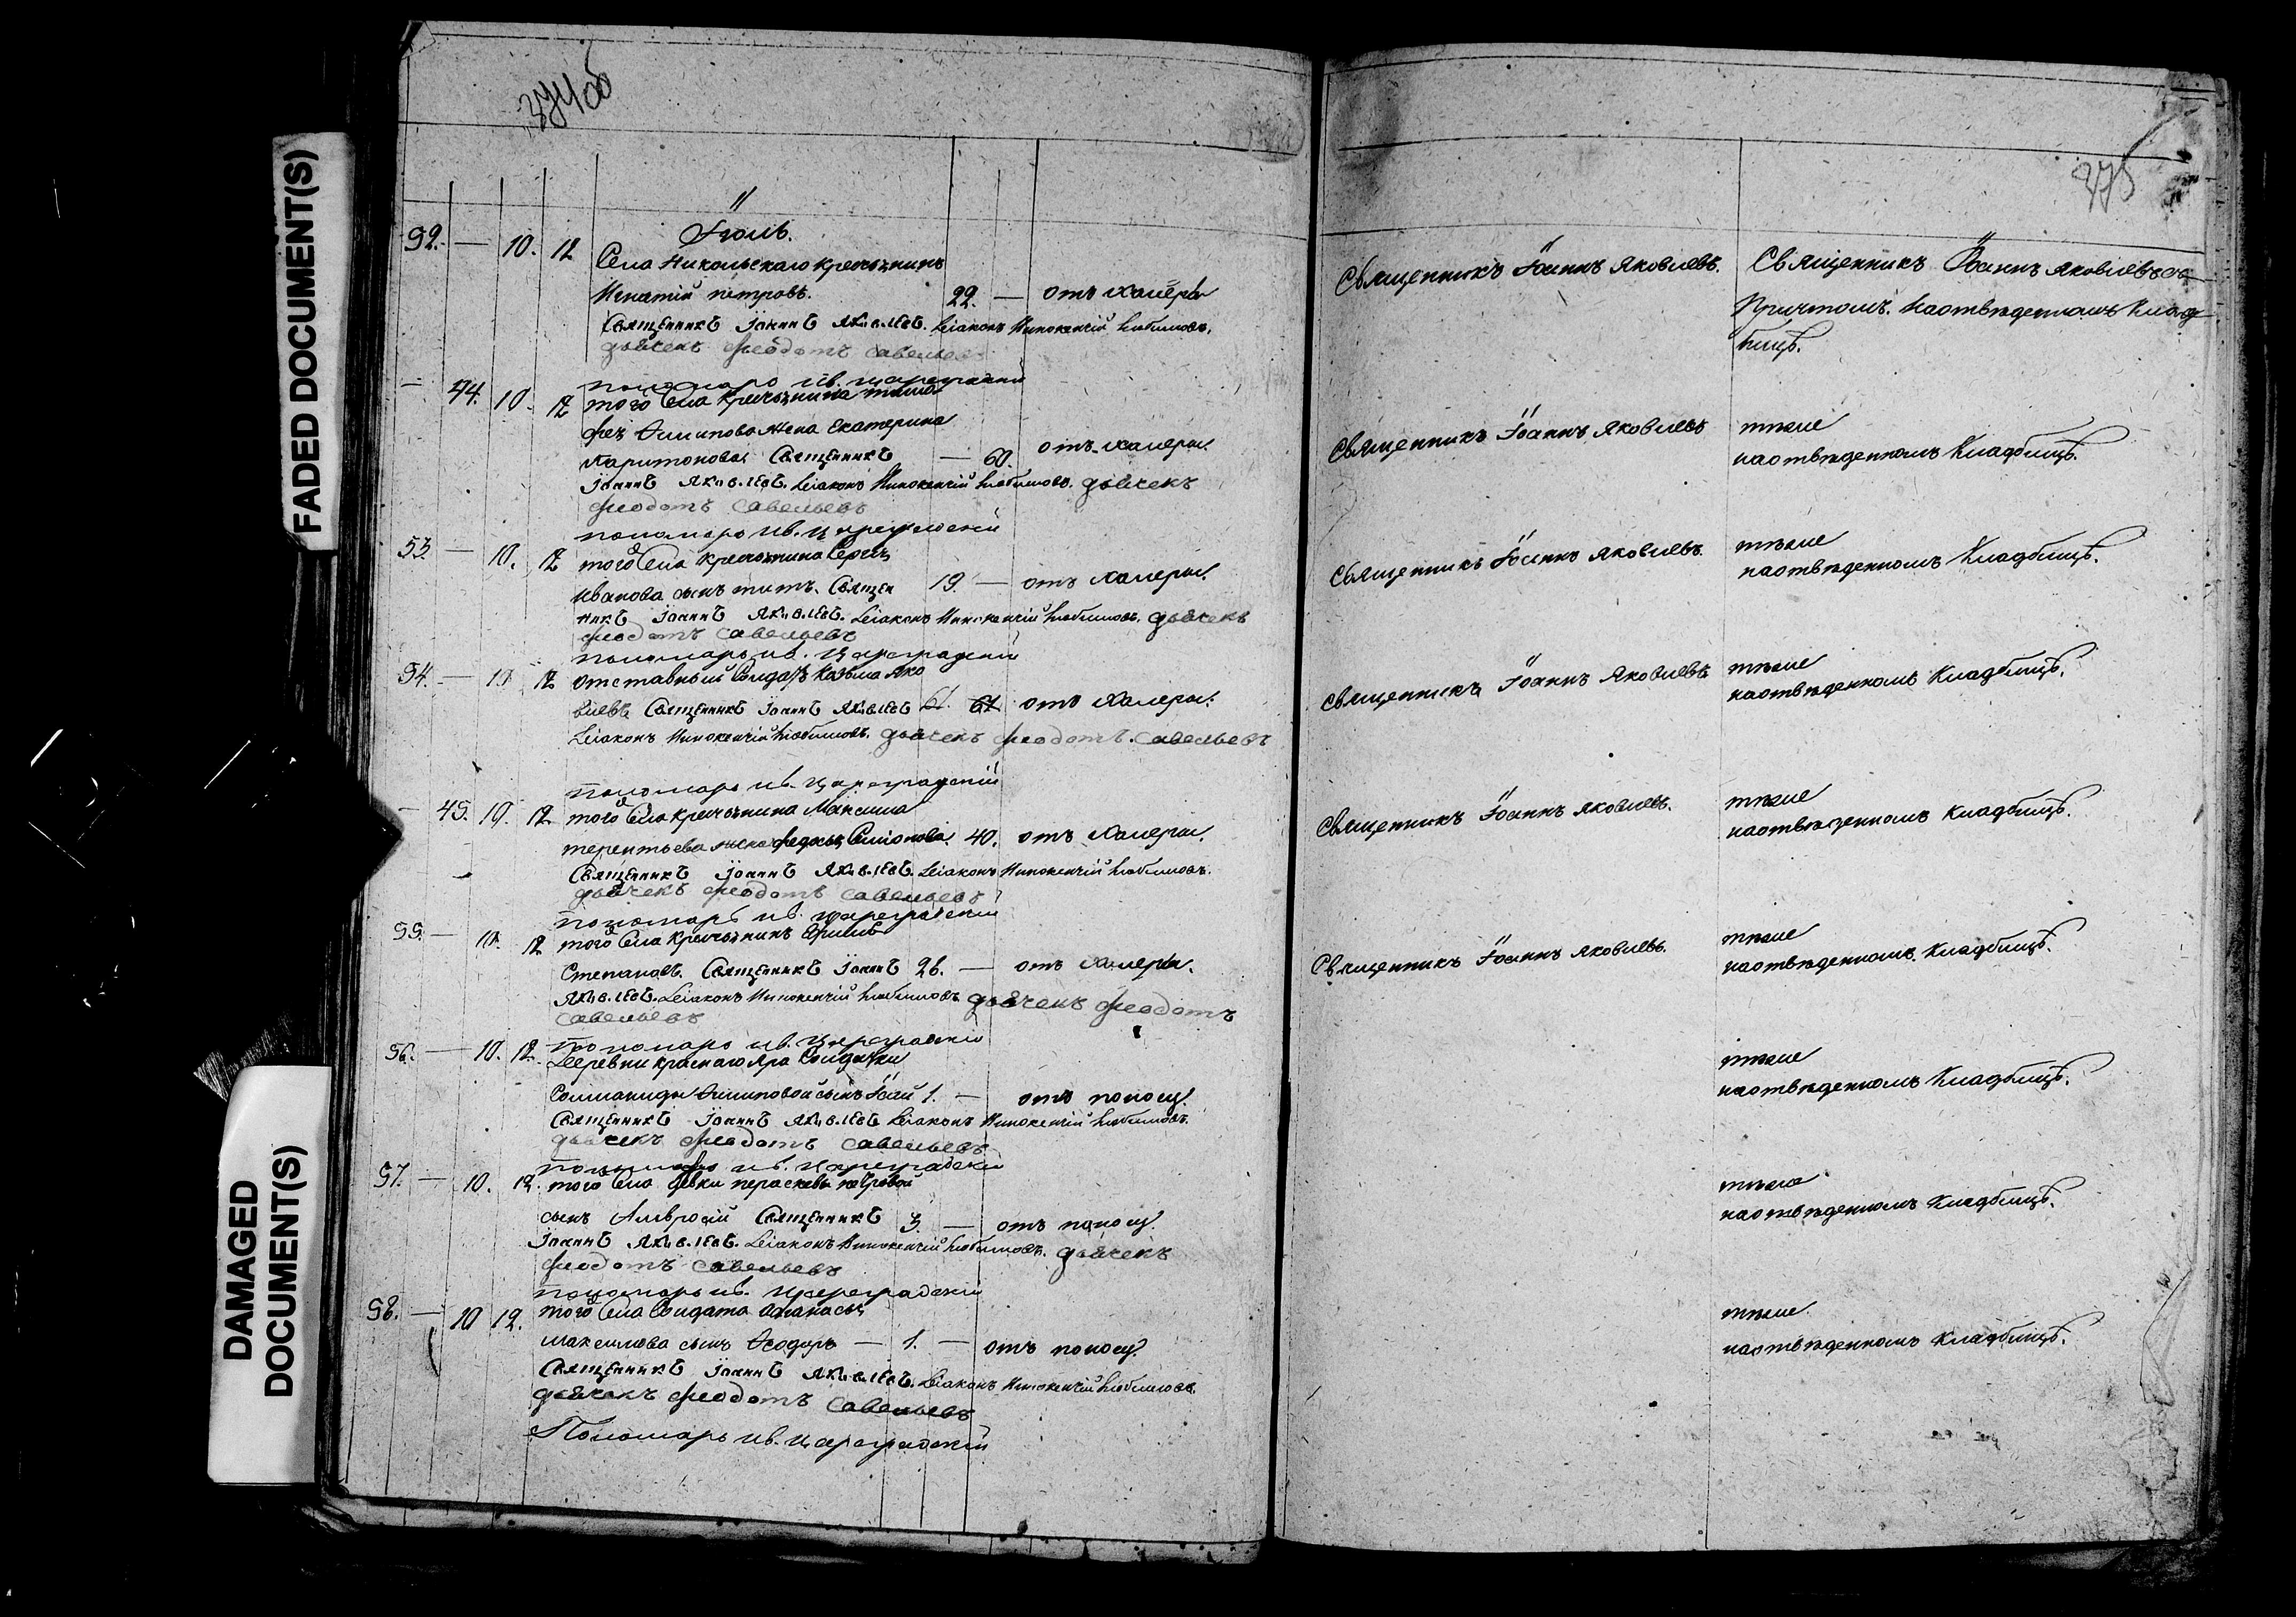 FADED DOCUMENT(S)
DAMAGED
DOCUMENT(S)
374 об
Іюль.
92. — 10. 12 Села Никольскаго крестьянинъ
Игнатій петровъ. 22. — отъ холеры
Священникъ Іоаннъ Яковлевъ. Діаконъ Иннокентій Любимовъ.
дьячекъ феодотъ савельевъ
пономарь ив. цареградскій
— 44. 10. 12 того села крестьянина
Филипова жена Екатерина
Харитонова. Священникъ — 60. отъ холеры.
Іоаннъ Яковлевъ. Діаконъ Иннокентій Любимовъ. дьячекъ
феодотъ савельевъ
пономарь ив. цареградскій
53. — 10. 12 того села крестьянина Сергея
Иванова сынъ титъ. Священ 19. — отъ холеры.
никъ Іоаннъ Яковлевъ. Діаконъ Иннокентій Любимовъ. дьячекъ
феодотъ савельевъ
пономарь ив. цареградскій
54. — 10 12 отставный солдатъ Козьма Яко
влевъ Священникъ Іоаннъ Яковлевъ 61. 61 отъ холеры.
Діаконъ Иннокентій Любимовъ. дьячекъ феодотъ. савельевъ
пономарь ив. цареградскій
— 45. 10. 12. того села крестьянина Максима
терентьева жена федосья Семіонова. 40. отъ холеры.
Священникъ Іоаннъ Яковлевъ. Діаконъ Иннокентій Любимовъ.
дьячекъ феодотъ савельевъ
пономарь ив. цареградскій
55. — 10. 12 того села крестьянинъ
Степановъ. Священникъ Іоаннъ 26. — отъ холеры.
Яковлевъ. Діаконъ Иннокентій Любимовъ дьячекъ феодотъ
савельевъ
пономарь ив. цареградскій
56. — 10. 12. Деревни краснаго яра солдатки
Соломаниды Филиповой сынъ 1. — отъ поносу.
Священникъ Іоаннъ Яковлевъ Діаконъ Иннокентій Любимовъ.
дьячекъ феодотъ савельевъ
пономарь ив. цареградскій
57. — 10. 12. того села девки пераскевы петровой
сынъ Амвросій Священникъ 3. — отъ поносу.
Іоаннъ Яковлевъ. Діаконъ Иннокентій Любимовъ. дьячекъ
феодотъ савельевъ
пономарь ив. цареградскій
58. — 10 12. того села солдата Афанасья
максимова сынъ Феодоръ — 1. — отъ поносу.
Священникъ Іоаннъ Яковлевъ. Діаконъ Иннокентій Любимовъ.
дьячекъ феодотъ савельевъ
Пономарь ив. цареградскій
375
Священникъ Іоаннъ Яковлевъ. Священникъ Іоаннъ Яковлевъ съ
Причтомъ. наотвѣденномъ Клад
бищѣ.
Священникъ Іоаннъ Яковлевъ тѣже
наотвѣденномъ Кладбищѣ.
Священникъ Іоаннъ Яковлевъ. тѣже
наотвѣденномъ Кладбищѣ.
Священникъ Іоаннъ Яковлевъ тѣже
наотвѣденномъ Кладбищѣ.
Священникъ Іоаннъ Яковлевъ. тѣже
наотвѣденномъ Кладбищѣ.
Священникъ Іоаннъ Яковлевъ. тѣже
наотвѣденномъ Кладбищѣ.
тѣже
наотвѣденномъ Кладбищѣ.
тѣже
наотвѣденномъ Кладбищѣ.
тѣже
наотвѣденномъ Кладбищѣ.